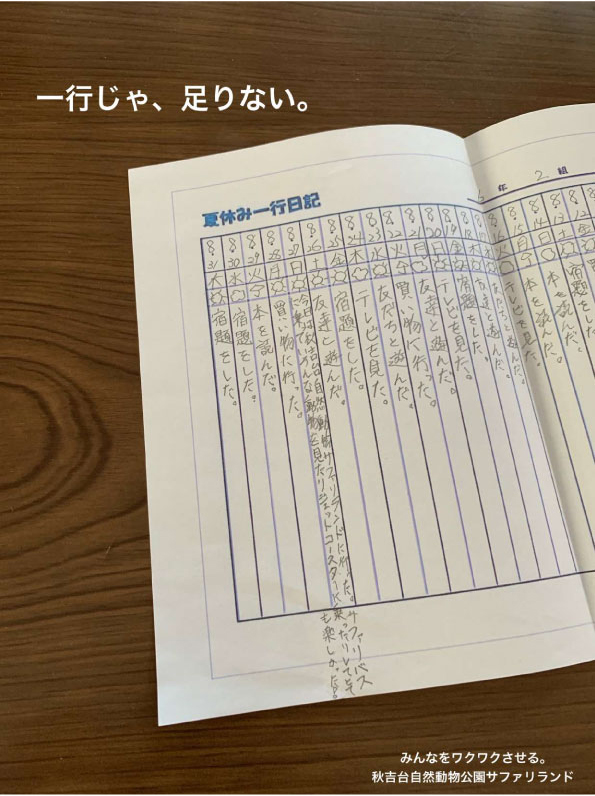 一行じゃ、足りない。
年 2 組
夏休み一行日記
本を読んだ。
本を読んだ。
テレビを見た。
友だちと遊んだ。
友達と遊んだ。
宿題をした。
テレビを見た。
友達と遊んだ。
買い物に行った。
友だちと遊んだ。
テレビを見た。
8・24 木
宿題をした。
8・25 金
友達と遊んだ。
8・26 土
今日は秋吉台自然動物公園サファリランドに行った。サファリバスに乗っていろんな動物を見たりジェットコースターに乗ったりしてとても楽しかった。
8・27 日
買い物に行った。
8・28 月
本を読んだ。
8・29 火
宿題をした。
8・30 水
宿題をした。
8・31 木
みんなをワクワクさせる。
秋吉台自然動物公園サファリランド